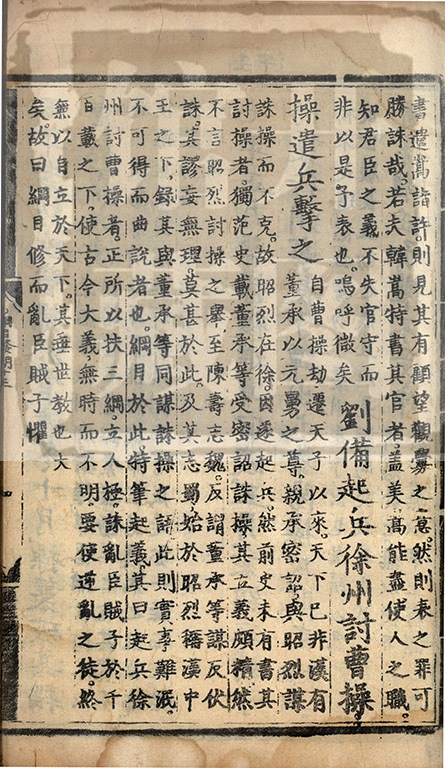 書遣嵩詣許則見其有顧望觀釁之意然則表之罪可
勝誅哉若夫韓嵩特書其官者蓋美嵩能盡使人之職
知君臣之義不失官守而
非以是予表也嗚呼微矣
劉備起兵徐州討曹操
操遣兵擊之
自曹操劫遷天子以來天下已非漢有
董承以元舅之尊親承密詔與昭烈謀
誅操而不克故昭烈在徐因遂起兵然前史未有書其
討操者獨范史載董承等受密詔誅操其立義頗精然
不言昭烈討操之舉至陳壽志魏反謂董承等謀反伏
誅其謬妄無理莫甚於此及其志蜀始於昭烈稱漢中
王之下錄其與董承等同謀誅操之語此則實事難泯
不可得而曲說者也綱目於此特筆起義其曰起兵徐
州討曹操者正所以扶三綱立人極誅亂臣賊子於千
百載之下使古今大義無時而不明要使逆亂之徒終
無以自立於天下其垂世教也大
矣故曰綱目修而亂臣賊子懼